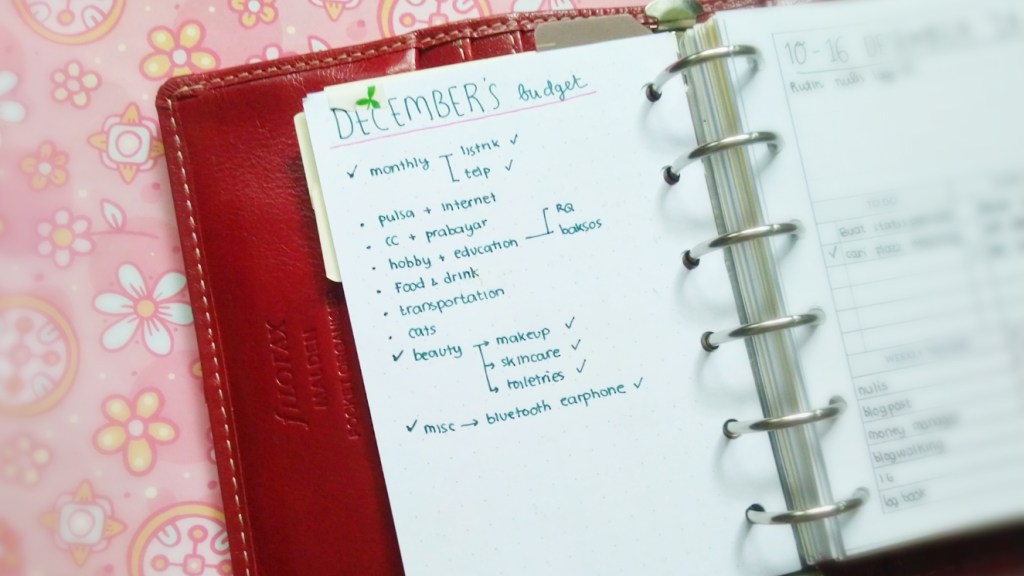 DECEMBER'S budget
✓ monthly listrik ✓
telp ✓
• pulsa + internet
• cc + prabayar
• hobby + education RQ
baksos
• Food & drink
• transportation
• cats
✓ beauty → makeup ✓
→ skincare ✓
→ toiletries ✓
✓ misc → bluetooth earphone ✓
filofax
MALDEN
10 - 16
✓
nulis
blogpost
money manager
blogwalking
IG